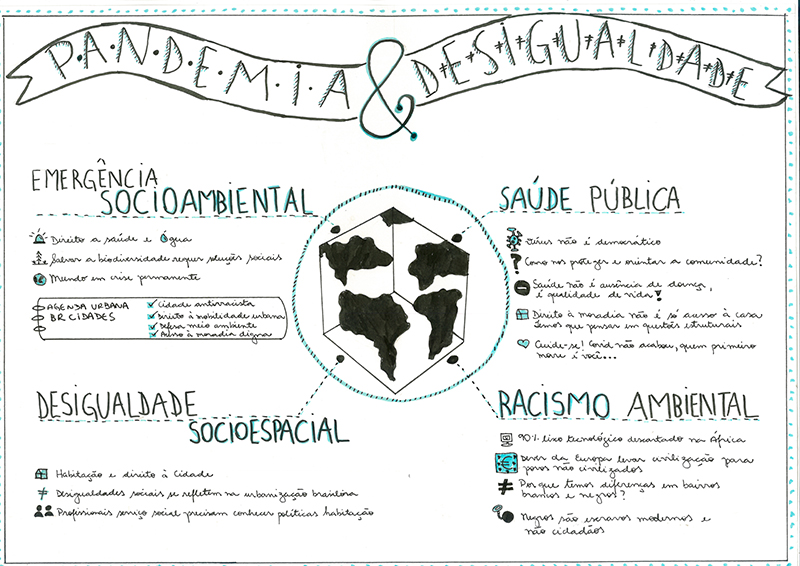 PANDEMIA & DESIGUALDADE
EMERGÊNCIA
SOCIOAMBIENTAL
Direito a saúde e Água
Salvar a biodiversidade requer soluções sociais
Mundo em crise permanente
AGENDA URBANA
BR CIDADES
Cidade antirracista
Direito à mobilidade urbana
Defesa meio ambiente
Acesso à moradia digna
SAÚDE PÚBLICA
Vírus não é democrático
Como nos proteger e orientar a comunidade?
Saúde não é ausência de doença,
é qualidade de vida!
Direito à moradia não é só acesso à casa
temos que pensar em questões estruturais
Cuide-se! Covid não acabou, quem primeiro
morre é você...
DESIGUALDADE
SOCIOESPACIAL
Habitação e direito à Cidade
Desigualdades sociais se refletem na urbanização brasileira
Profissionais serviço social precisam conhecer políticas habitação
RACISMO AMBIENTAL
90% lixo tecnológico descartado na África
Dever da Europa levar civilização para
povos não civilizados
Por que temos diferenças em bairros
brancos e negros?
Negros são escravos modernos e
não cidadãos